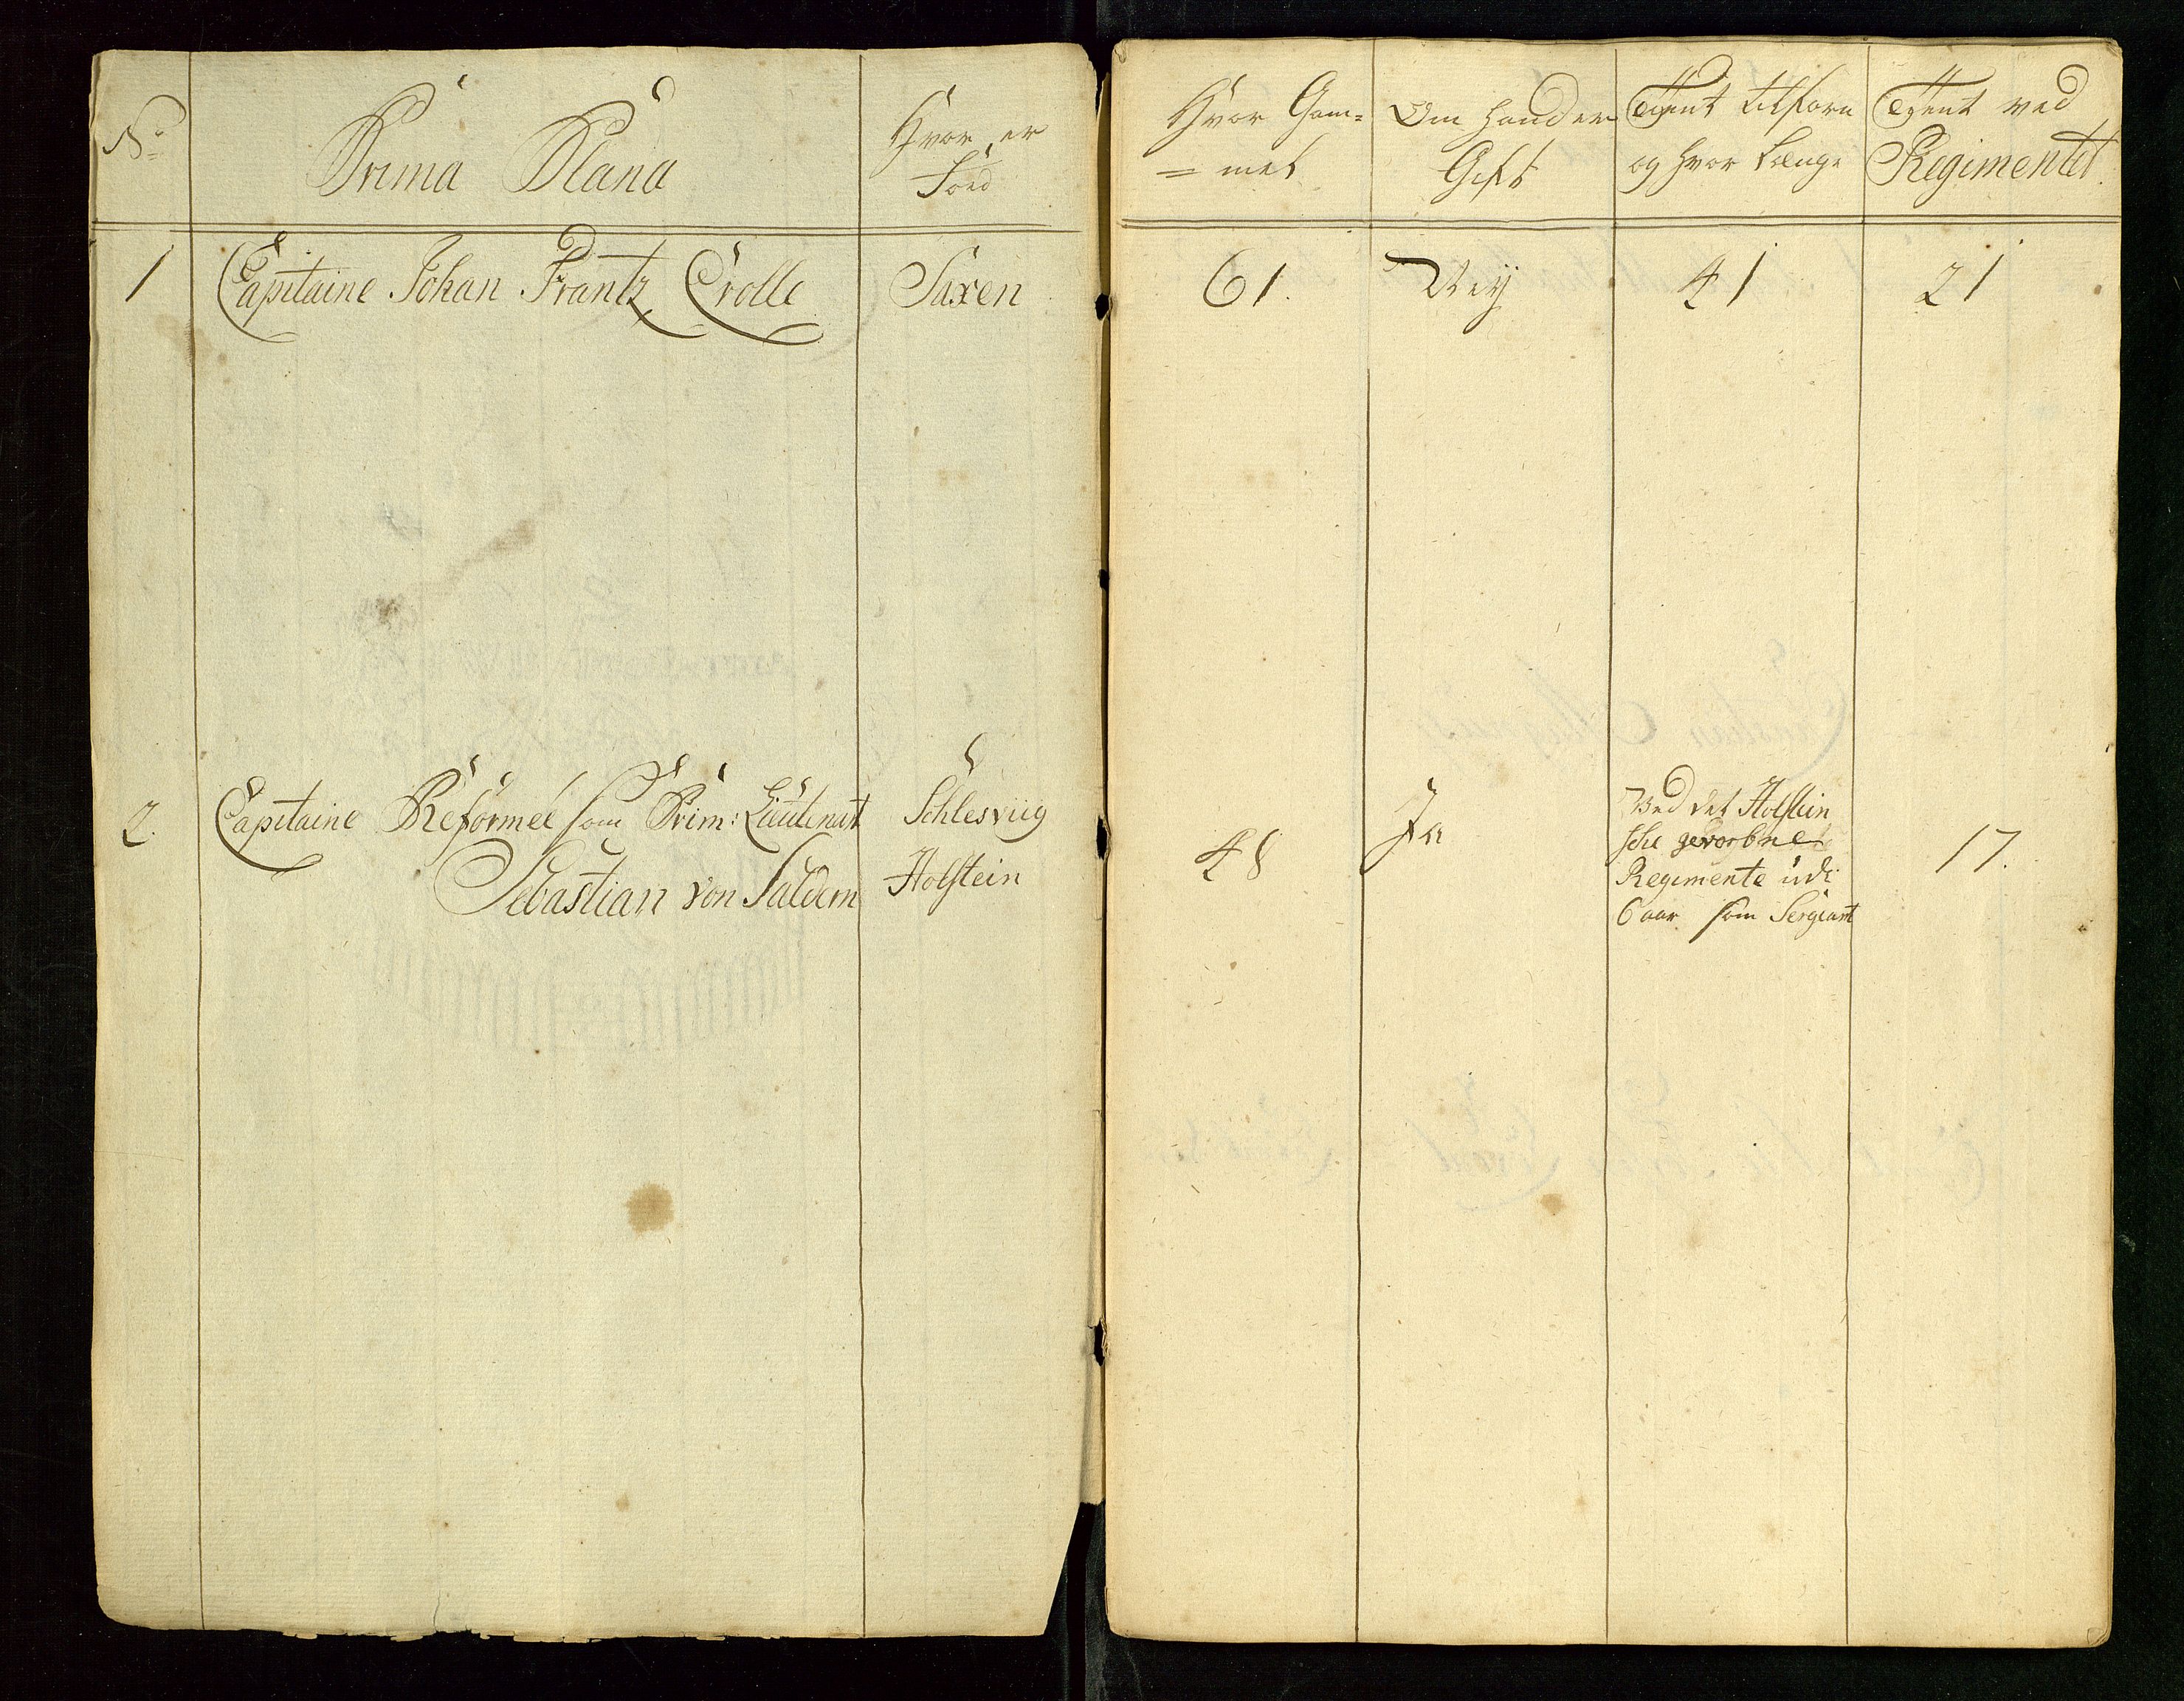 No
Prima Plana
Hvor er
Föed
Hvor Gam=
= mel
Om hand er
Gift
Tient tilforn
og hvor længe
Tient ved
Regimentet.
1
Capitaine Johan Frantz Crolle
Saxen
61.
Ney
41
21
2.
Capitaine Reformee som Prim: Lieutenant
Sebastian von Saldern
Schlesviig
Holstein
48
Ja
Ved det Holstein
sche gevorbne
Regimente udi
6 aar som Sergeant
17.